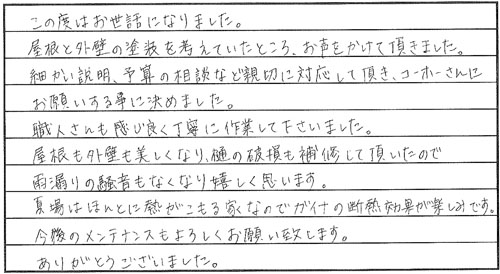 この度はお世話になりました。
屋根と外壁の塗装を考えていたところ、お声をかけて頂きました。
細かい説明、予算の相談など親切に対応して頂き、コーホーさんに
お願いする事に決めました。
職人さんも感じ良く丁寧に作業して下さいました。
屋根も外壁も美しくなり、樋の破損も補修して頂いたので
雨漏りの騒音もなくなり嬉しく思います。
夏場はほんとに熱がこもる家なのでガイナの断熱効果が楽しみです。
今後のメンテナンスもよろしくお願い致します。
ありがとうございました。